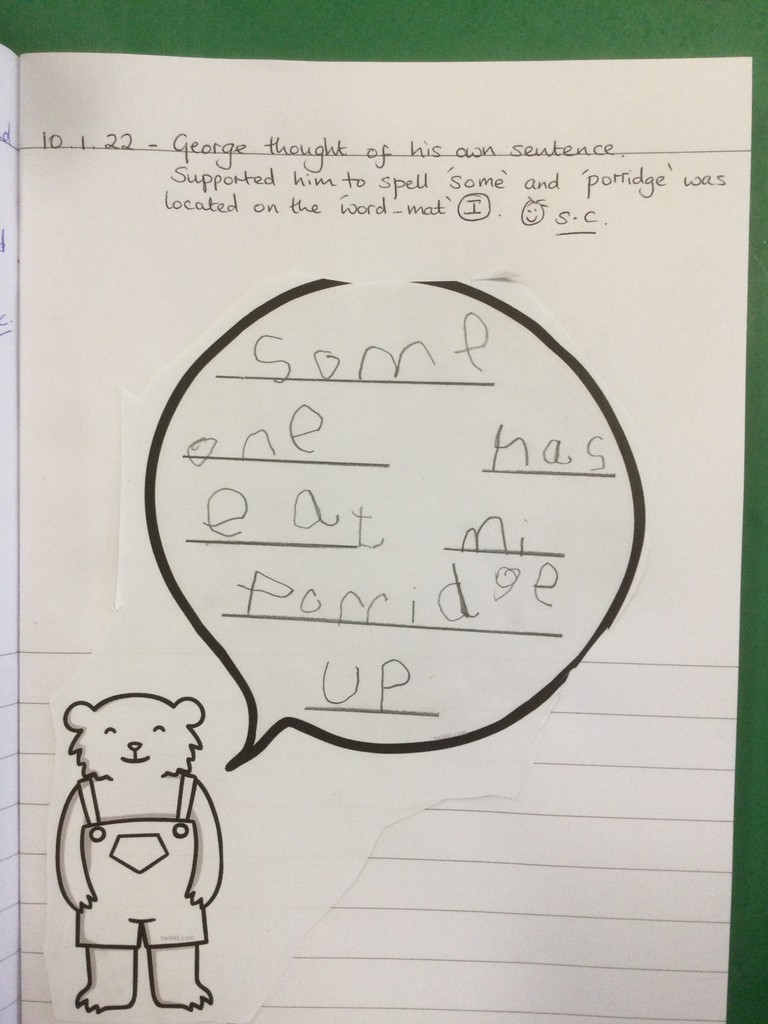 10.1.22 - George thought of his own sentence.
Supported him to spell 'some' and 'porridge' was
located on the 'word-mat' I. S.C.
some
one has
eat mi
porridge
UP
twinkl.com